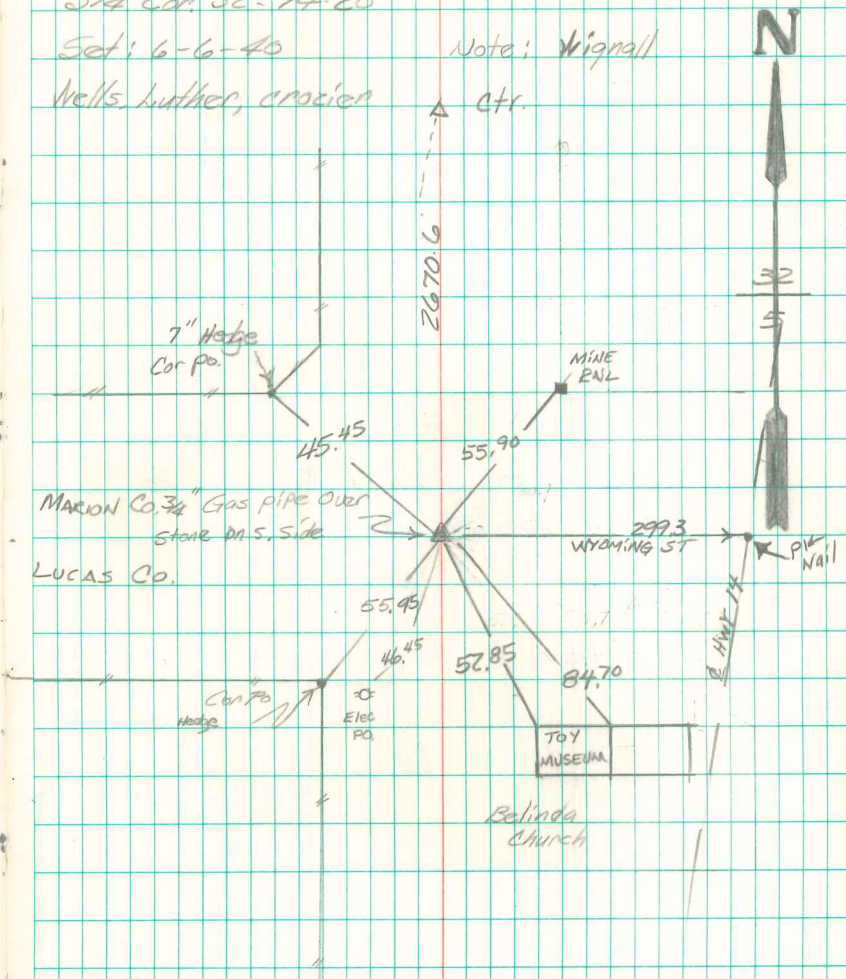 S¼ Cor. 32-74-20
Set: 6-6-40
Wells, Luther, Crozier
Note: Wignall
Ctr.
N
2670.6
32
5
7" Hedge
Cor po.
MINE
RAIL
45.45
55.90
MARION CO. 3/4" Gas pipe Over
Stone on S. Side
LUCAS CO.
299.3
WYOMING ST
PK
Nail
55.95
46.45
52.85
84.70
℄ HWY 14
Cor. Po
Hedge
Elec
PO.
TOY
MUSEUM
Belinda
Church